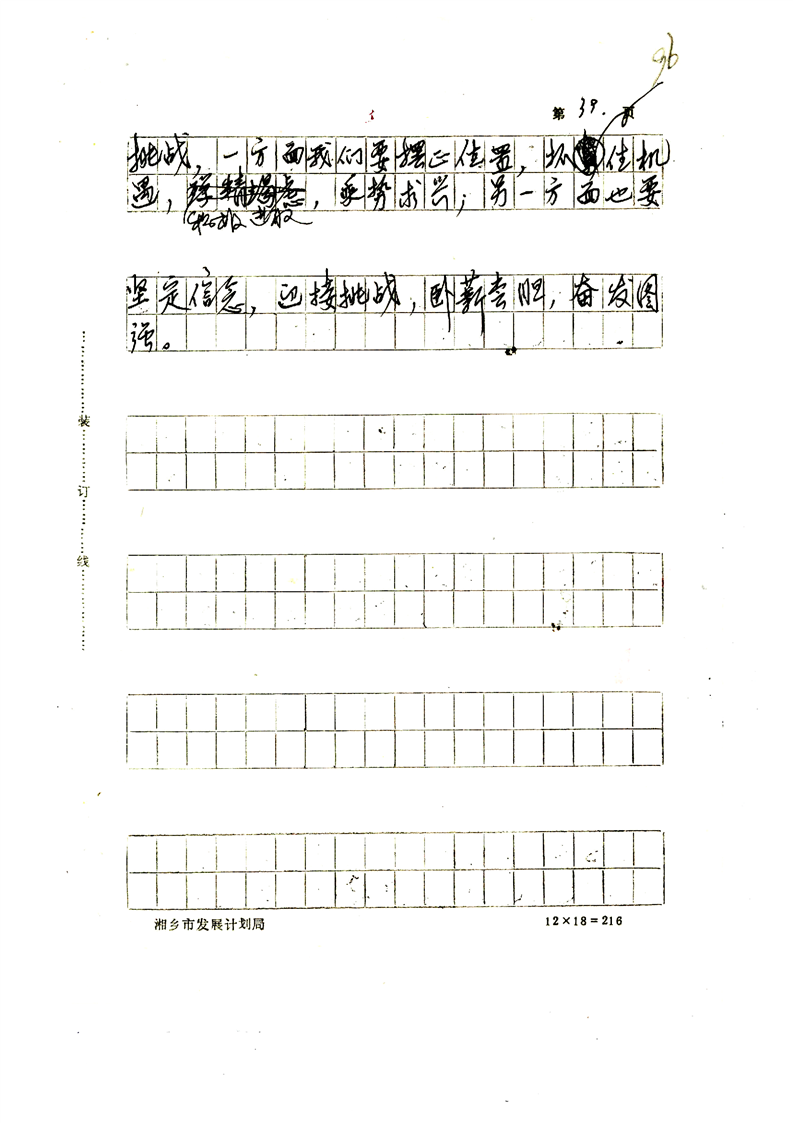 96
第 39. 页
挑战，一方面我们要摆正位置，抓住机
遇，乘势求兴；另一方面也要
积极进取
坚定信念，迎接挑战，卧薪尝胆，奋发图
强。
装
订
线
湘乡市发展计划局
12×18=216